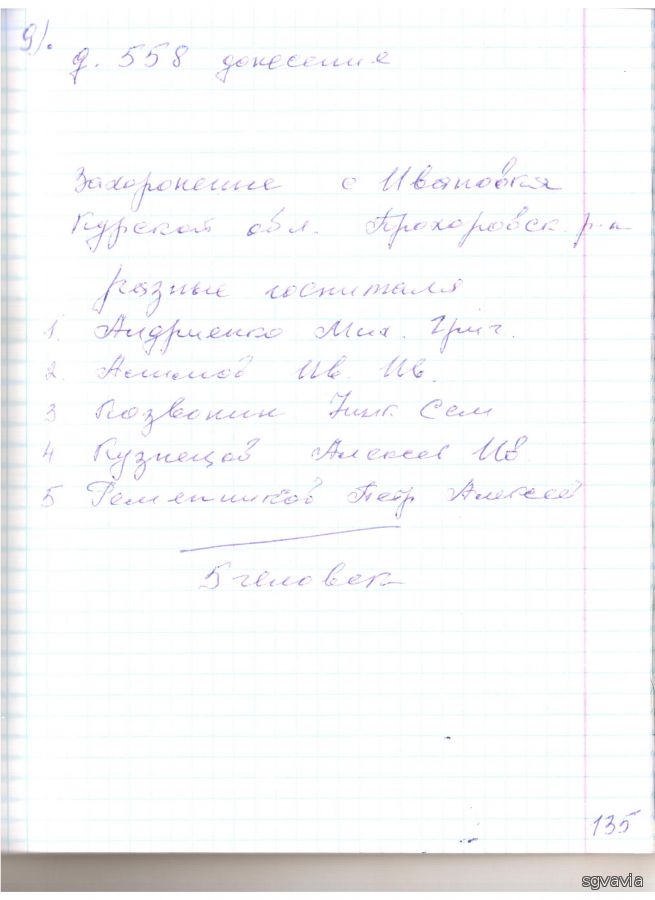 9).
д. 558 донесения
Захоронение с Ивановка
Курской обл. Прохоровск. р-н
разные госпиталя
1. Андриенко Мих. Григ.
2. Ив. Ив.
3 Козвонин Сем
4 Кузнецов Алексей Ив
5 Петр Алексей
5 человек
135
sgvavia